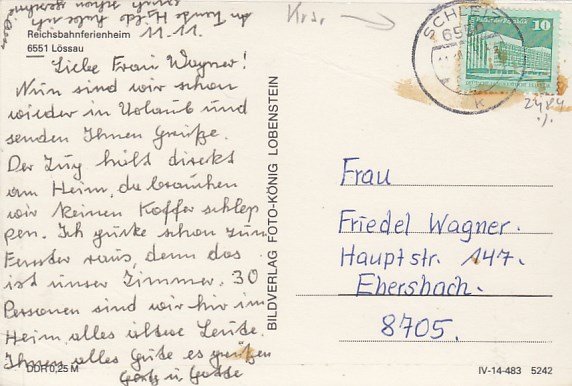 Reichsbahnferienheim
6551 Lössau
11.11.
Liebe Frau Wagner!
Nun sind wir schon
wieder in Urlaub und
senden Ihnen Grüße.
Der Zug hält direkt
am Heim, da brauchen
wir keinen Koffer schlep
pen. Ich gucke schon zum
Fenster raus, denn das
ist unser Zimmer. 30
Personen sind wir hir im
Heim, alles ältere Leute.
Ihnen alles Gute es grüßen
Gerty u. Gatte
DDR 0,25 M
BILDVERLAG FOTO-KÖNIG LOBENSTEIN
Krs.
SCHLEIZ
10
Frau
Friedel Wagner.
Hauptstr. 147.
Ebersbach.
8705.
IV-14-483 5242